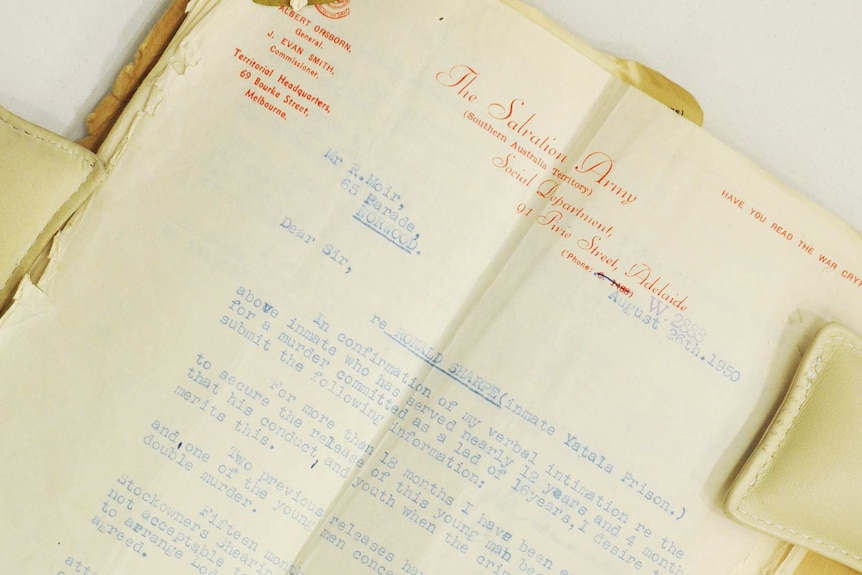 ALBERT ORSBORN,
General.
J. EVAN SMITH,
Commissioner.
Territorial Headquarters,
69 Bourke Street,
Melbourne.
The Salvation Army
(Southern Australia Territory)
Social Department,
91 Pirie Street, Adelaide
('Phone:
W 2888
HAVE YOU READ THE WAR CRY?
August 26th.1950
Mr R.Moir,
65 Parade,
NORWOOD.
Dear Sir,
re RONALD SHARPE(inmate Yatala Prison.)
In confirmation of my verbal intimation re the
above inmate who has served nearly 12 years and 4 month
for a murder committed as a lad of 16years, I desire t
submit the following information:
For more than 18 months I have been a
to secure the release of this young man bec
that his conduct and youth when the crim
merits this.
Two previous releases ha
and one of the young men conce
double murder.
Fifteen mon
Stockowners Shearin
not acceptable
to arrange
agreed.